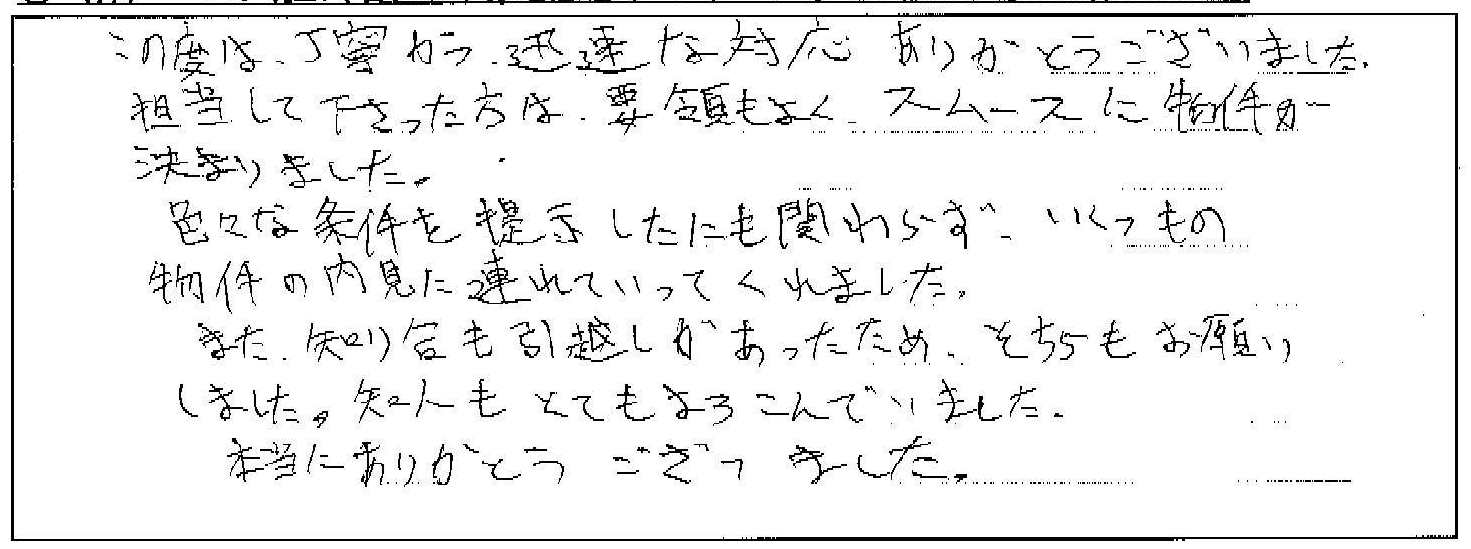 この度は、丁寧かつ、迅速な対応 ありがとうございました。
担当して下さった方は、要領もよく、スムースに物件が
決まりました。
色々な条件を提示したにも関わらず、いくつもの
物件の内見に連れていってくれました。
また、知り合も引越しがあったため、そちらもお願い
しました。知人もとてもよろこんでいました。
本当にありがとうございました。